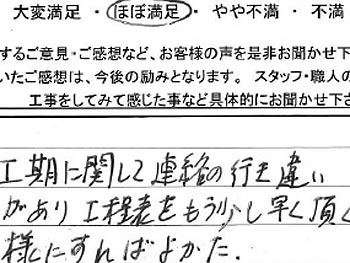 大変満足 ・ ほぼ満足 ・ やや不満 ・ 不満
するご意見・ご感想など、お客様の声を是非お聞かせ下
いたご感想は、今後の励みとなります。 スタッフ・職人の
工事をしてみて感じた事など具体的にお聞かせ下さ
工期に関して連絡の行き違い
があり工程表をもう少し早く頂く
様にすればよかた.